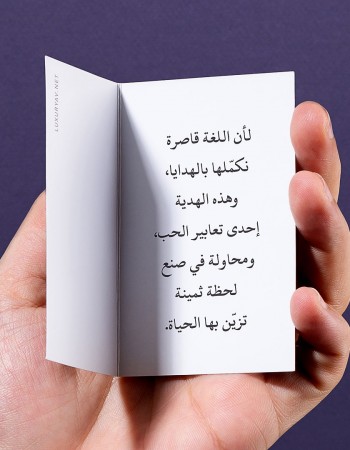 لأن اللغة قاصرة
نكمّلها بالهدايا،
وهذه الهدية
إحدى تعابير الحب،
ومحاولة في صنع
لحظة ثمينة
تزيّن بها الحياة.